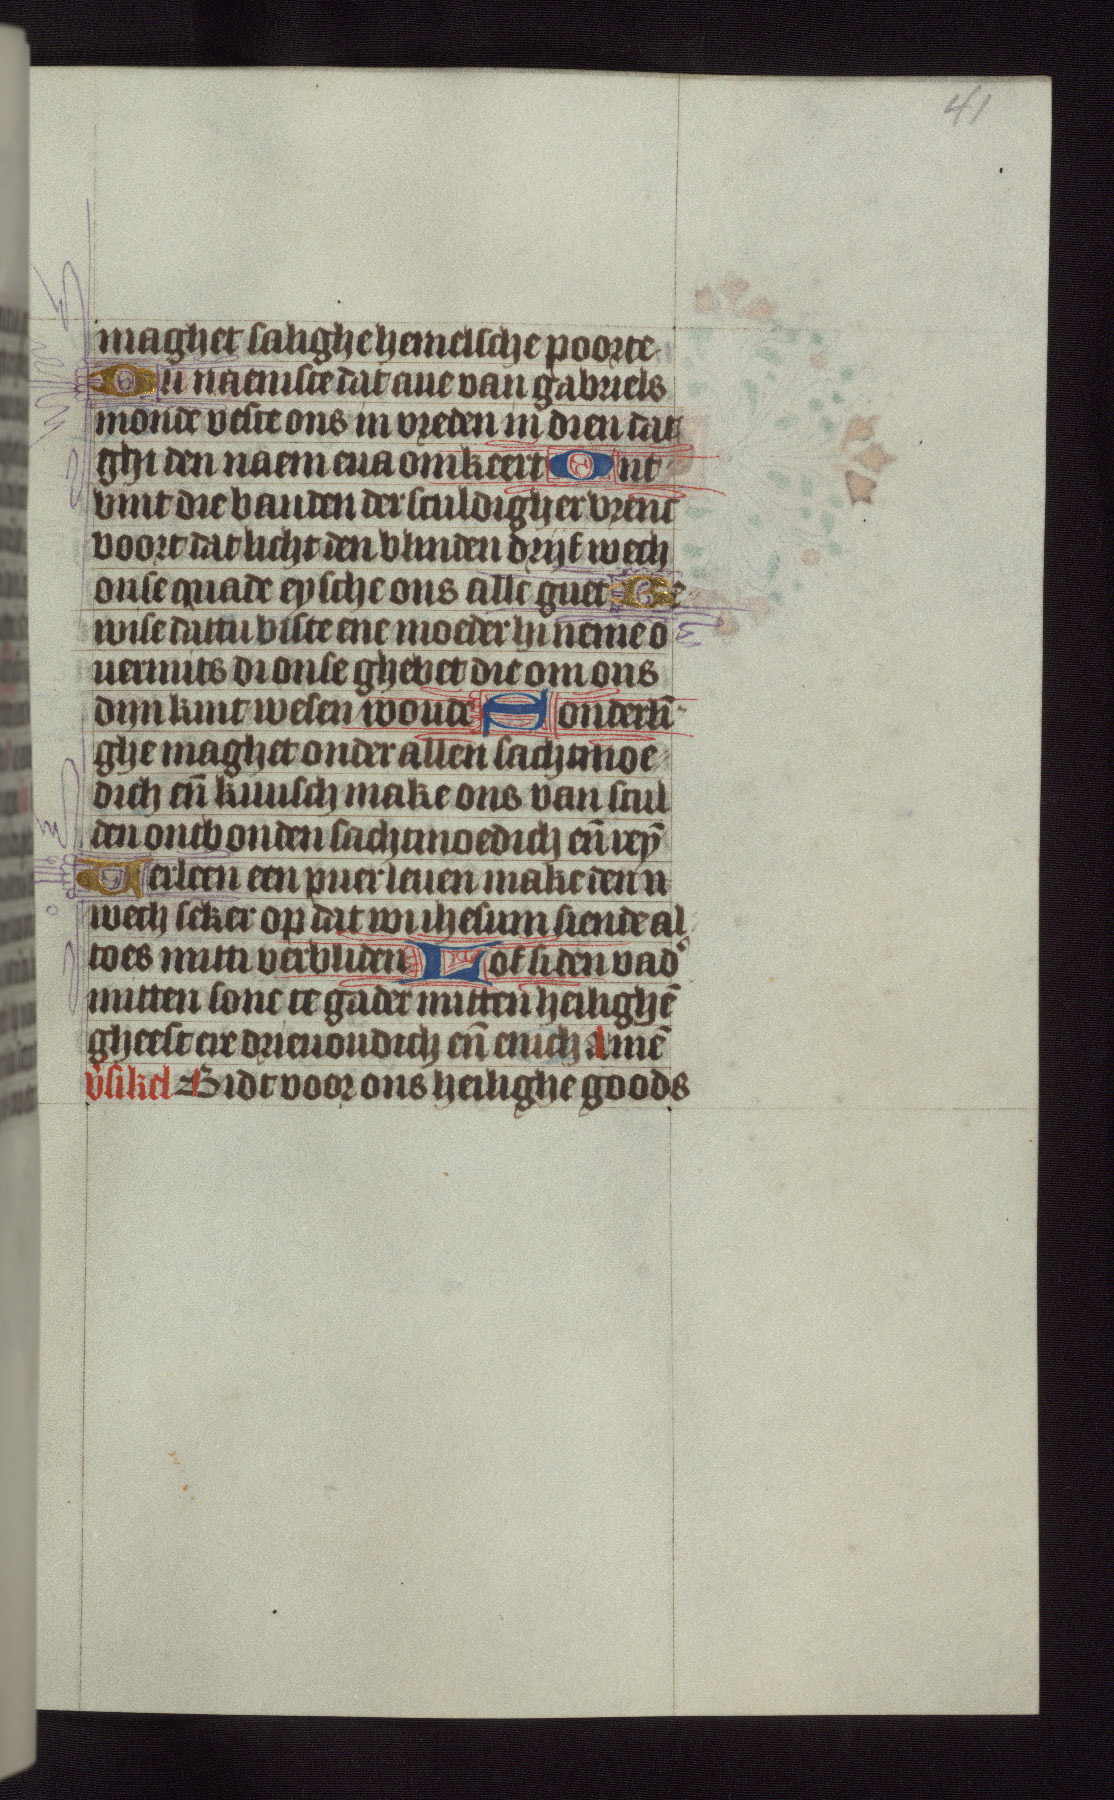 41
maghet salighe hemelsche poorte
Du naemste dat aue van gabriels
monde veste ons in vreden in dien dat
ghi den naem eua omkeert Ont
bint die banden der sculdigher brenc
voort dat licht den blinden drijf wech
onse quade eysche ons alle guet Be
wise dattu biste ene moeder hi neme o
uermits di onse ghebet die om ons
dijn kint wesen woude Sonderlī
ghe maghet onder allen sachtmoe
dich eñ kuusch make ons van scul
den ontbonden sachtmoedich eñ reȳ
Verleen een puer leuen make den n
wech seker op dat wi ihesum siende al
toes mitti verbliden Lof si den vad'
mitten sone te gader mitten heilighē
gheest ere drieuoudich eñ enich Amē
v'sikel Bidt voor ons heilighe goods